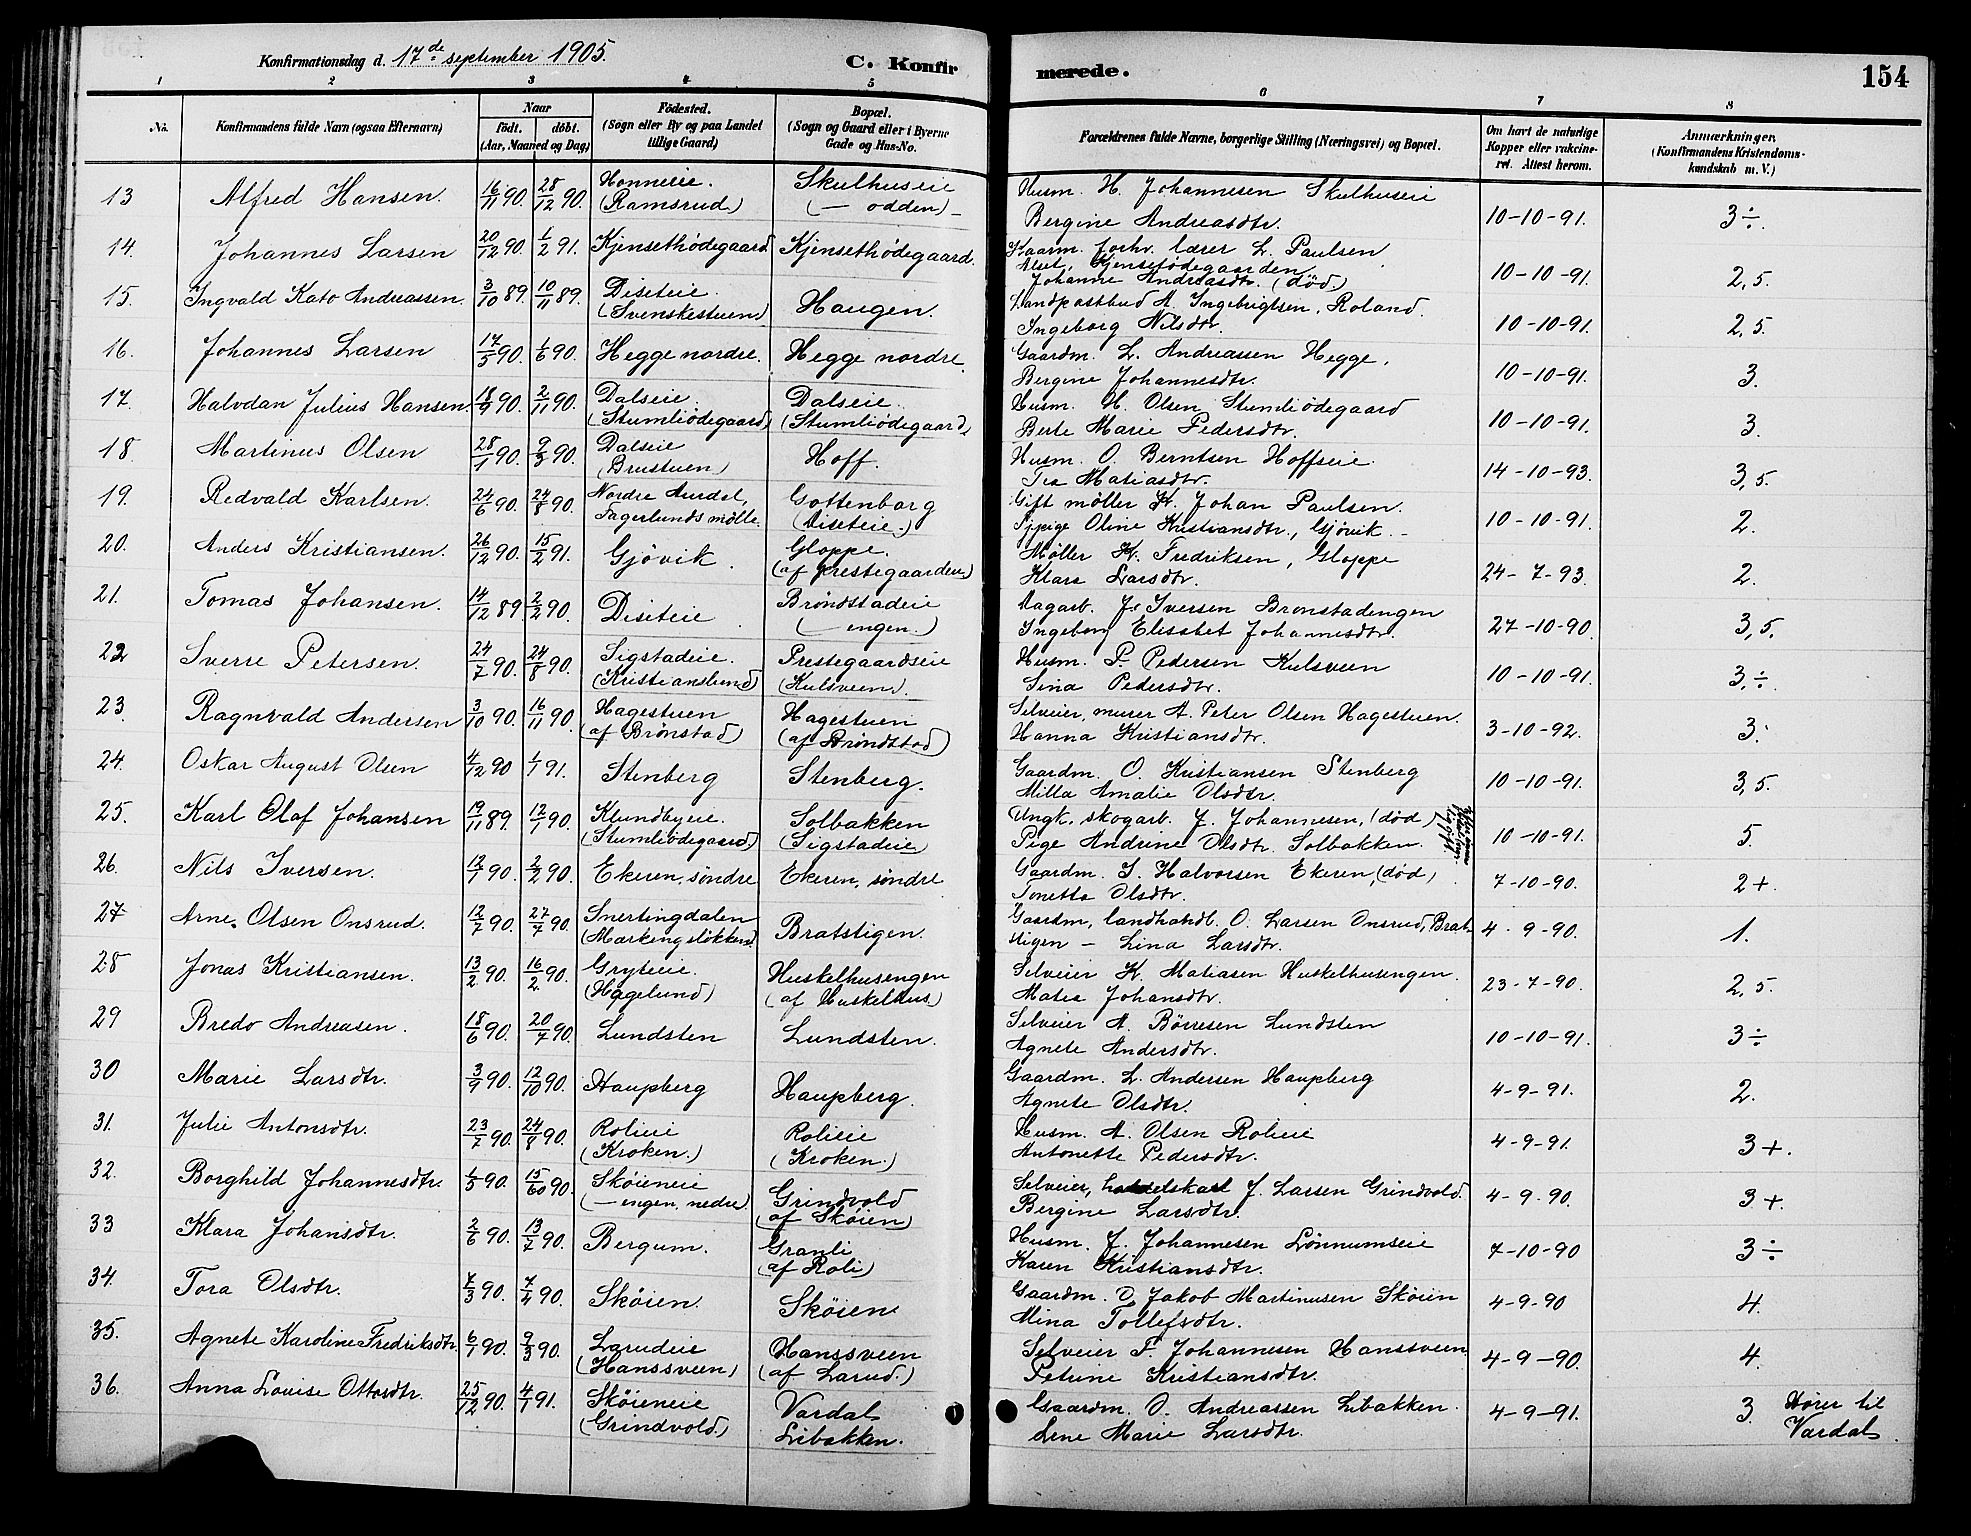 Konfirmationsdag d. 17de september 1905.
C. Konfir
merede.
154
1 2 3 4 5 6 7 8
No.
Konfirmandens fulde Navn (ogsaa Efternavn)
Naar
födt. döbt.
(Aar, Maaned og Dag)
Födested.
(Sogn eller By og paa Landet
tillige Gaard)
Bopæl.
(Sogn og Gaard eller i Byerne
Gade og Hus-No.
Forældrenes fulde Navne, borgerlige Stilling (Næringsvei) og Bopæl.
Om havt de naturlige
Kopper eller vakcine-
ret. Attest herom.
Anmærkninger,
(Konfirmandens Kristendoms-
kundskab m. V.)
13 Alfred Hansen. 16/11 90. 28/12 90. Honneie. Skulhuseie Husm. H. Johannesen Skulhuseie
(Ramsrud) (— odden) Bergine Andreasdtr. 10-10-91. 3÷.
14. Johannes Larsen 20/12 90. 1/2 91. Kjensethödegaard Kjensethødegaard. Gaardm. forhv. lærer L. Paulsen
Alset, Kjensetødegaarden
Johanne Andreasdtr. (död.) 10-10-91. 2,5.
15. Ingvald Kato Andreassen. 3/10 89. 10/11 89. Diseteie. Haugen. Landpostbud A. Ingebrigtsen, Roland.
(Svenskestuen) Ingeborg Nilsdtr. 10-10-91. 2,5.
16. Johannes Larsen 17/5 90. 1/6 90. Hegge nordre. Hegge nordre. Gaardm. L. Andreassen Hegge,
Bergine Johannesdtr. 10-10-91. 3.
17. Halvdan Julius Hansen. 18/9 90. 2/11 90. Dalseie. Dalseie. Husm. H. Olsen Stumliödegaard
(Stumliödegaard) (Stumliödegaard) Berte Marie Pedersdtr. 10-10-91. 3.
18. Martinus Olsen 28/1 90. 9/3 90. Dalseie Hoff. Husm. O. Berntsen Hoffseie.
(Brustuen) Tea Matiasdtr. 14-10-93. 3,5.
19. Redvald Karlsen. 24/6 90. 24/8 90. Nordre Aurdal, Gottenborg Gift møller K. Johan Paulsen.
Fagerlunds mølle. (Diseteie.) Pige Oline Kristiansdtr., Gjövik. 10-10-91. 2.
20. Anders Kristiansen. 26/12 90. 15/2 91. Gjövik. Gloppe. Møller K. Fredriksen, Gloppe
(af prestegaarden) Klara Larsdtr. 24-7-93. 2.
21. Tomas Johansen. 14/12 89 2/2 90. Diseteie Bröndstadeie Dagarb. J. Iversen Bronstadengen
(— engen.) Ingeborg Elisabet Johannesdtr. 27-10-90. 3,5.
22 Sverre Petersen. 24/7 90. 24/8 90. Sigstadeie. Prestegaardseie Husm. P. Pedersen Kulsveen
(Kristianslund) (Kulsveen). Sina Pedersdtr. 10-10-91. 3,÷.
23. Ragnvald Andersen 3/10 90. 16/11 90. Hagestuen Hagestuen Selveier, murer A. Peter Olsen Hagestuen.
(af Brønstad) (af Bröndstad) Hanna Kristiansdtr. 3-10-92. 3.
24. Oskar August Olsen 4/12 90 1/1 91. Stenberg Stenberg. Gaardm. O. Kristiansen Stenberg
Milla Amalie Olsdtr. 10-10-91. 3,5.
25. Karl Olaf Johansen 19/11 89. 12/1 90. Klundbyeie. Solbakken Ungk. skogarb. J. Johannesen, (død)
(Stumliödegaard) (Sigstadeie) Pige Andrine Olsdtr. Solbakken. 10-10-91. 5.
26. Nils Iversen. 12/1 90. 2/2 90. Ekeren, søndre Ekeren, søndre Gaardm. I. Halvorsen Ekeren, (død)
Tonette Olsdtr. 7-10-90. 2+.
27 Arne Olsen Onsrud. 12/7 90. 27/7 90. Snertingdalen Bratstigen. Gaardm, landhandl. O. Larsen Onsrud, Brat-
(Markengsløkken) stigen – Lina Larsdtr. 4-9-90. 1.
28 Jonas Kristiansen. 13/2 90. 16/2 90. Gryteie. Huskelhusengen Selveier K. Matiasen Huskelhusengen.
(Hagelund) (af Huskelhus.) Matea Johansdtr. 23-7-90. 2,5.
29 Bredo Andreasen. 18/6 90. 20/7 90. Lundsten Lundsten. Selveier A. Börresen Lundsten
Agnete Andersdtr. 10-10-91. 3÷
30 Marie Larsdtr. 3/9 90. 12/10 90. Haupberg Haupberg. Gaardm. L. Andersen Haupberg
Agnete Olsdtr. 4-9-91. 2.
31. Julie Antonsdtr. 23/7 90. 24/8 90. Rolieie Rolieie Husm. A. Olsen Rolieie
(Kroken.) (Kroken.) Antonette Pedersdtr. 4-9-91. 3+.
32. Borghild Johannesdtr. 1/5 90. 15/6 90. Skøieneie Grindvold Selveier, J. Larsen Grindvold.
(— engen, nedre) (af Skøien) Bergine Larsdtr. 4-9-90. 3+.
33 Klara Johansdtr. 2/6 90. 13/7 90. Bergum. Granli Husm. J. Johannesen Lönnumseie
(af Roli) Karen Kristiansdtr. 7-10-90 3÷
34. Tora Olsdtr. 7/3 90. 7/4 90. Skøien. Skøien Gaardm. O. Jakob Martinusen Skøien
Mina Tollefsdtr. 4-9-90 4.
35. Agnete Karoline Fredriksdtr. 6/1 90. 9/3 90. Larudeie Hanssveen Selveier F. Johannesen Hanssveen
(Hanssveen) (af Larud.) Petrine Kristiansdtr. 4-9-90. 4.
36. Anna Lovise Ottosdtr. 25/12 90. 4/1 91. Skøieneie Vardal Gaardm. O. Andreassen Libakken.
(Grindvold.) Libakken. Lene Marie Larsdtr. 4-9-91. 3. Hører til
Vardal.